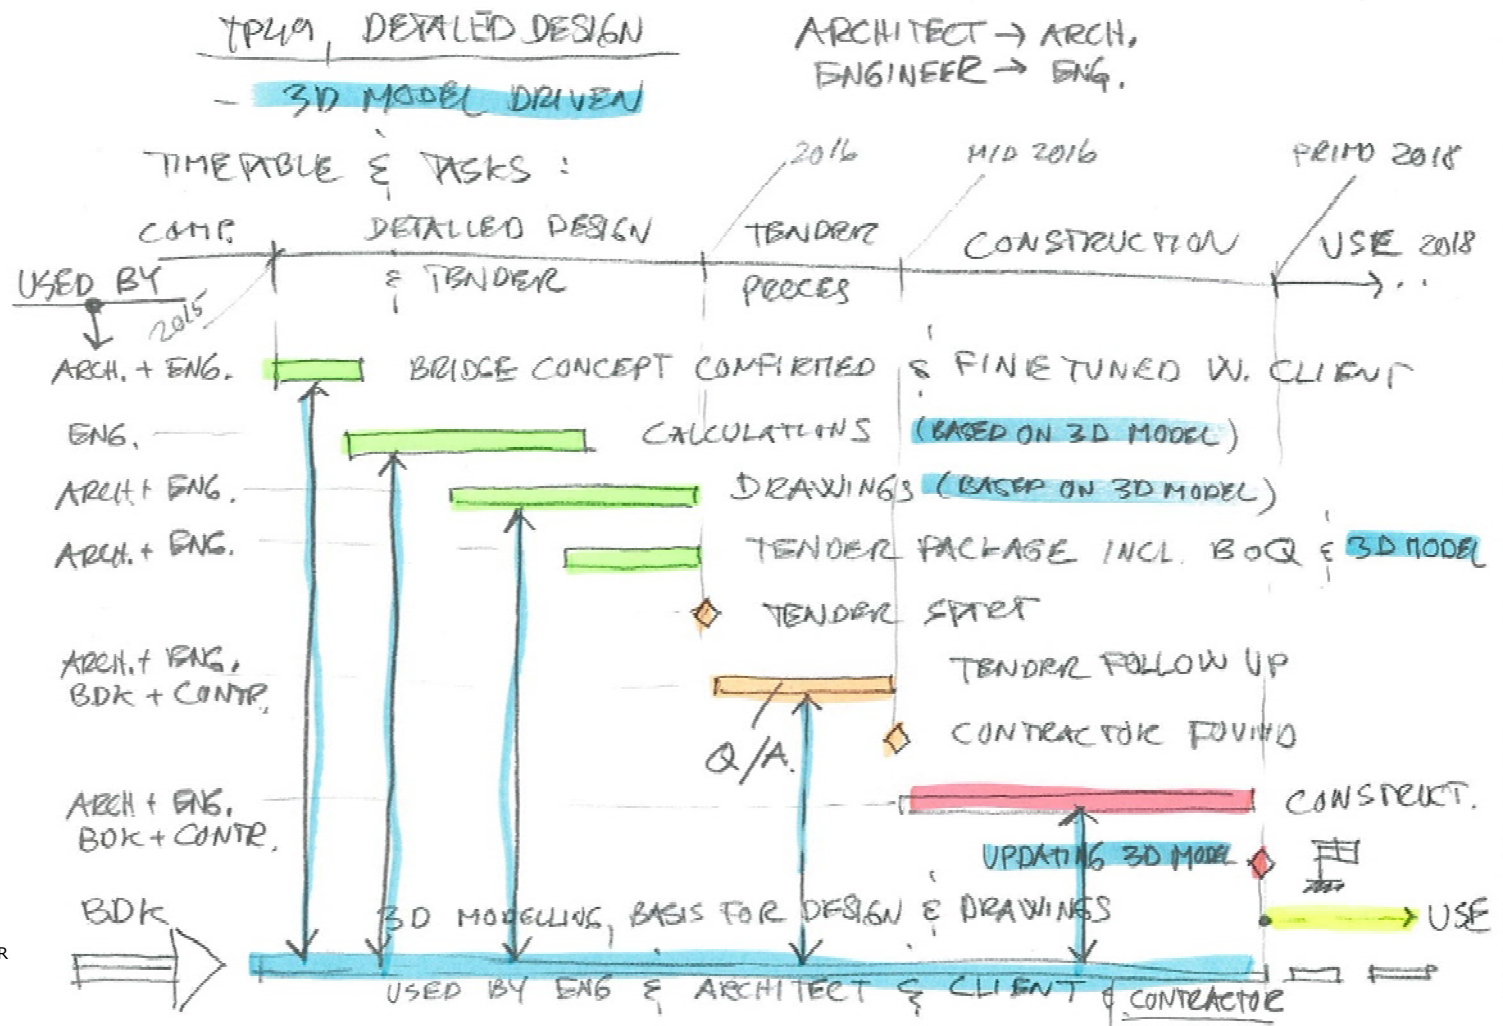 TP49, DETAILED DESIGN
- 3D MODEL DRIVEN
ARCHITECT → ARCH.
ENGINEER → ENG.
TIMETABLE & TASKS :
2016
MID 2016
PRIMO 2018
COMP.
DETAILED DESIGN
& TENDER
TENDER
PROCES
CONSTRUCTION
USE 2018
USED BY
2015
ARCH. + ENG.
BRIDGE CONCEPT CONFIRMED & FINETUNED W. CLIENT
ENG.
CALCULATIONS (BASED ON 3D MODEL)
ARCH. + ENG.
DRAWINGS (BASED ON 3D MODEL)
ARCH. + ENG.
TENDER PACKAGE INCL. BOQ & 3D MODEL
TENDER START
ARCH. + ENG.
BDK + CONTR.
TENDER FOLLOW UP
Q/A.
CONTRACTOR FOUND
ARCH + ENG.
BDK + CONTR.
CONSTRUCT.
UPDATING 3D MODEL
BDK
3D MODELLING, BASIS FOR DESIGN & DRAWINGS
USE
R
USED BY ENG & ARCHITECT & CLIENT & CONTRACTOR